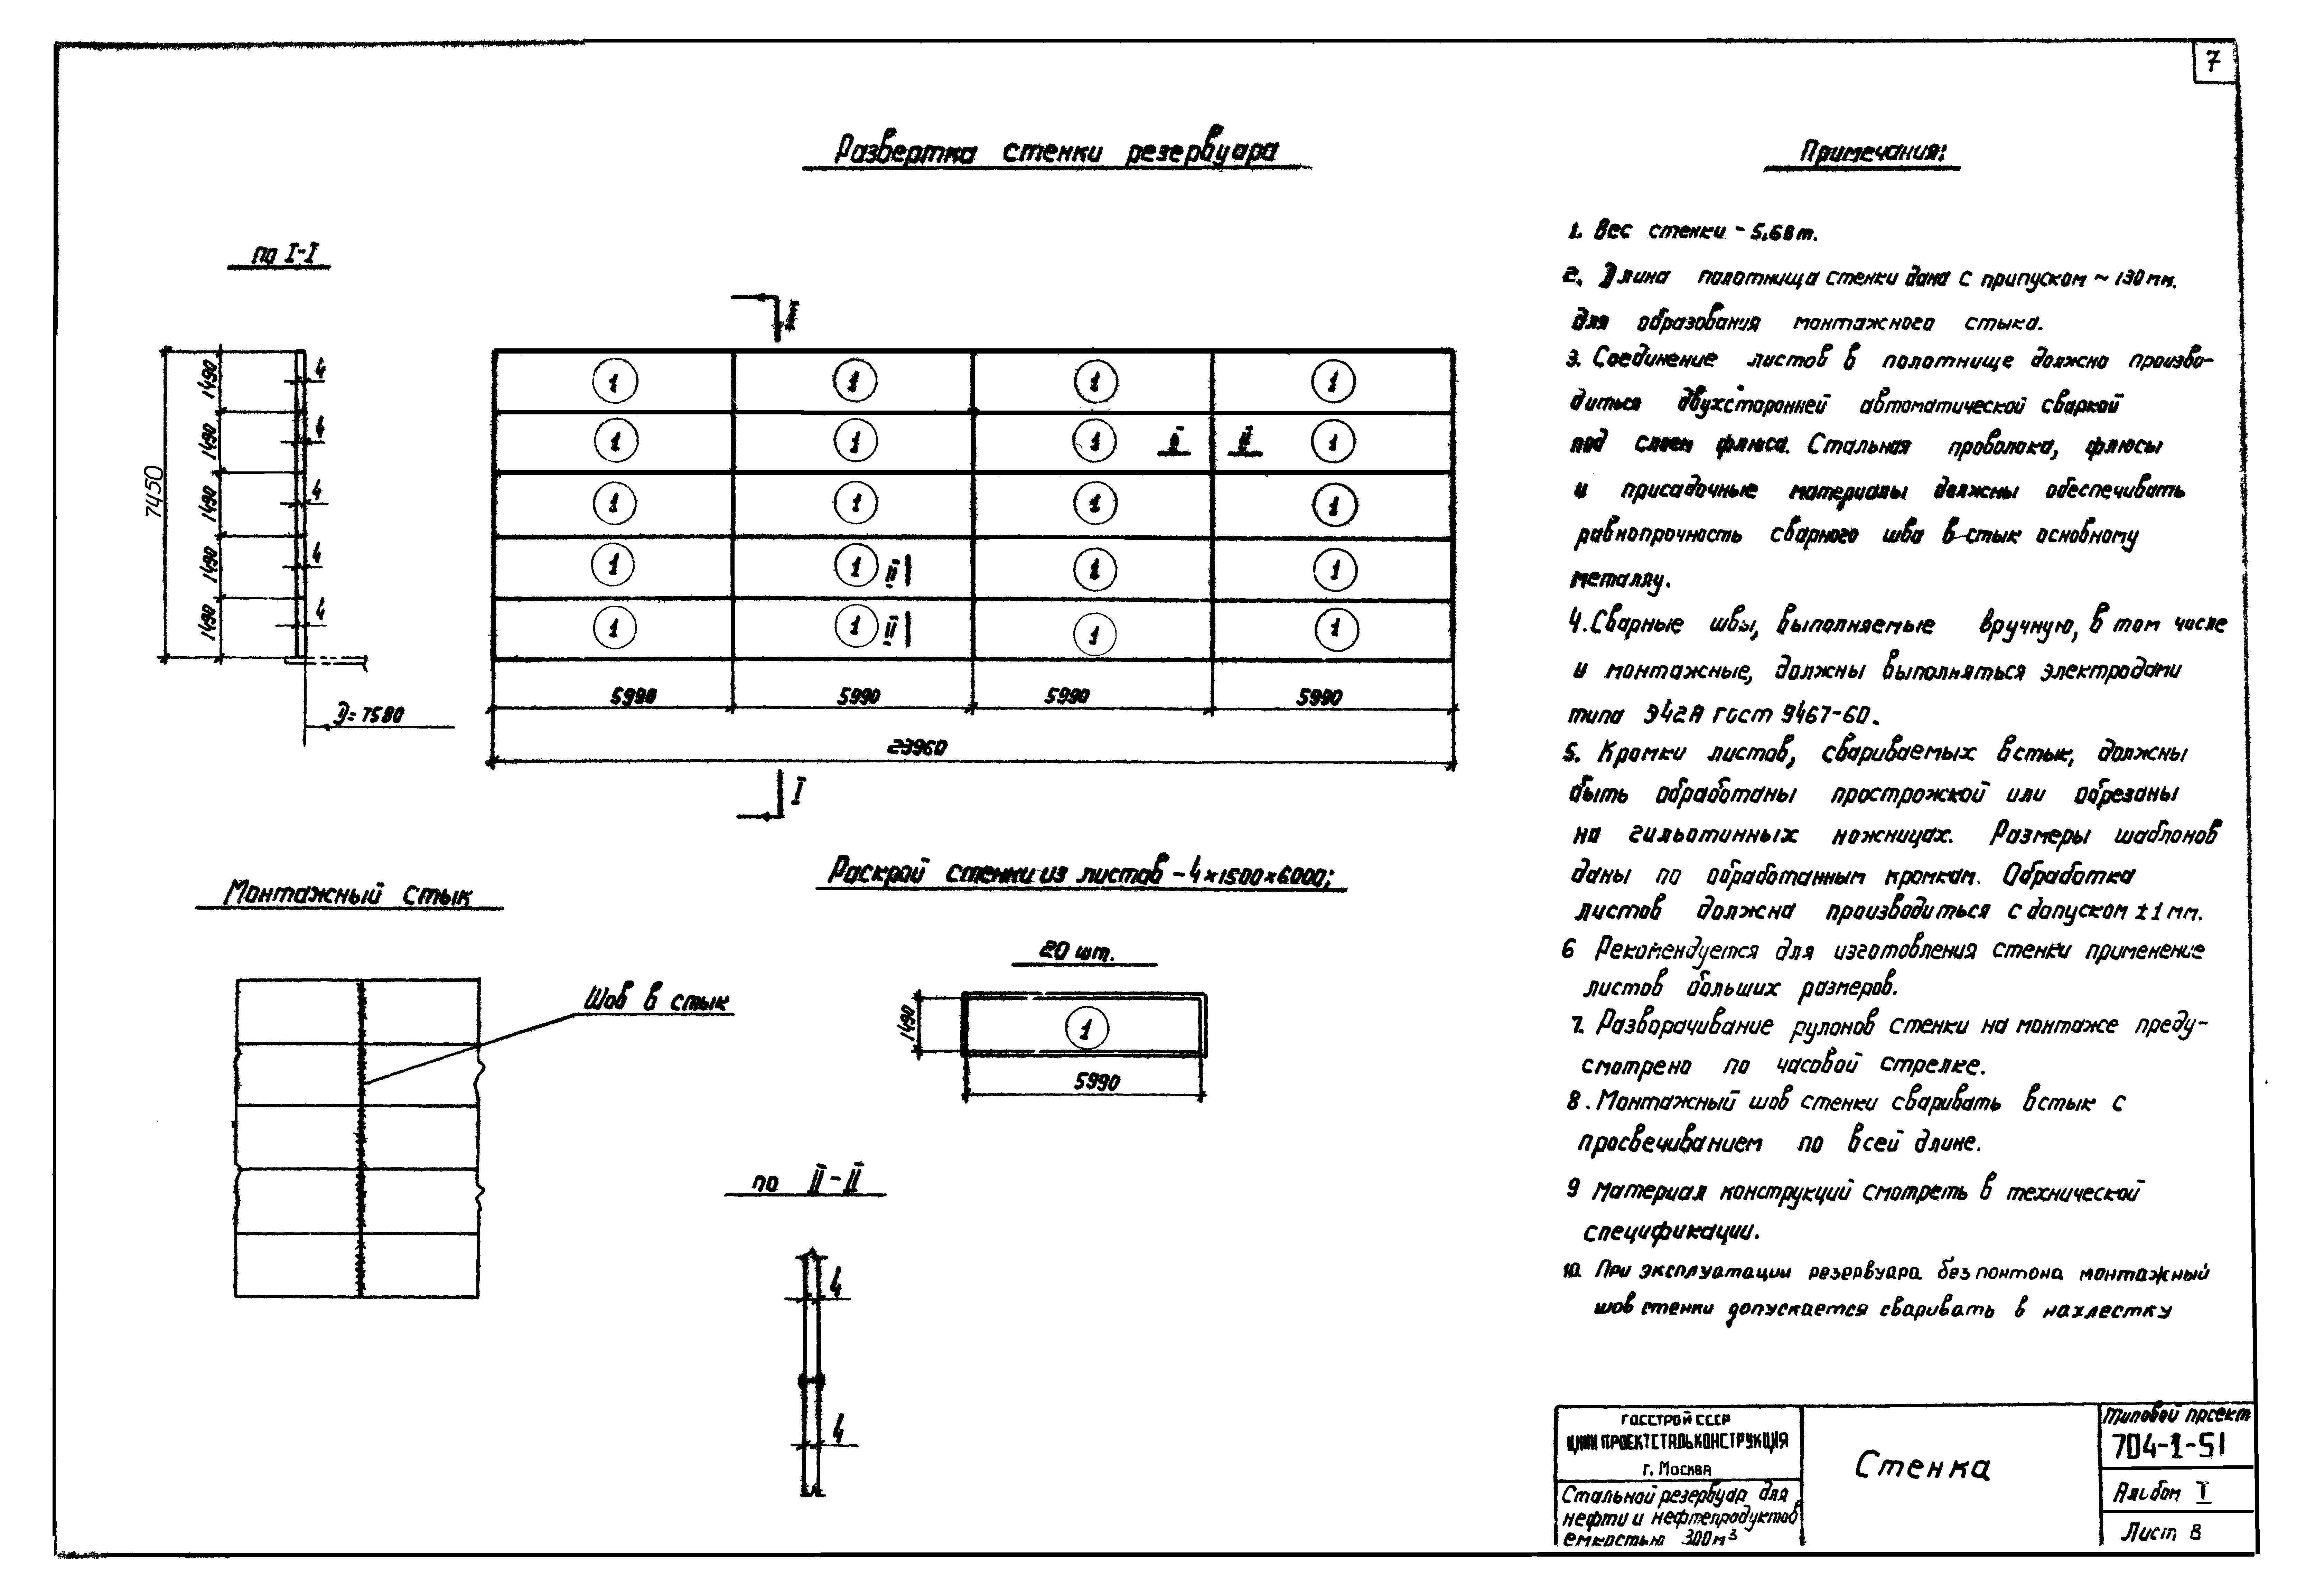 7
Развертка стенки резервуара
по I-I
1490
1490
1490
1490
1490
7450
4
4
4
4
4
D=7580
I
1
1
1
1
1
1
1
II
II
1
1
1
1
1
1
1
II
1
1
1
1
II
1
1
5990
5990
5990
5990
23960
I
Монтажный стык
Шов в стык
Раскрой стенки из листов - 4×1500×6000;
20 шт.
1490
1
5990
по II-II
4
4
Примечания:
1. Вес стенки - 5,68т.
2. Длина полотнища стенки дана с припуском ~ 130мм.
для образования монтажного стыка.
3. Соединение листов в полотнище должно произво-
диться двухсторонней автоматической сваркой
под слоем флюса. Стальная проволока, флюсы
и присадочные материалы должны обеспечивать
равнопрочность сварного шва в стык основному
металлу.
4. Сварные швы, выполняемые вручную, в том числе
и монтажные, должны выполняться электродами
типа Э42А ГОСТ 9467-60.
5. Кромки листов, свариваемых встык, должны
быть обработаны прострожкой или обрезаны
на гильотинных ножницах. Размеры шаблонов
даны по обработанным кромкам. Обработка
листов должна производиться с допуском ±1мм.
6 Рекомендуется для изготовления стенки применение
листов больших размеров.
7. Разворачивание рулонов стенки на монтаже преду-
смотрено по часовой стрелке.
8. Монтажный шов стенки сваривать встык с
просвечиванием по всей длине.
9 Материал конструкций смотреть в технической
спецификации.
10. При эксплуатации резервуара без понтона монтажный
шов стенки допускается сваривать в нахлестку
ГОССТРОЙ СССР
ЦНИИПРОЕКТСТАЛЬКОНСТРУКЦИЯ
г. Москва
Стальной резервуар для
нефти и нефтепродуктов
емкостью 300м³
Стенка
Типовой проект
704-1-51
Альбом I
Лист 8